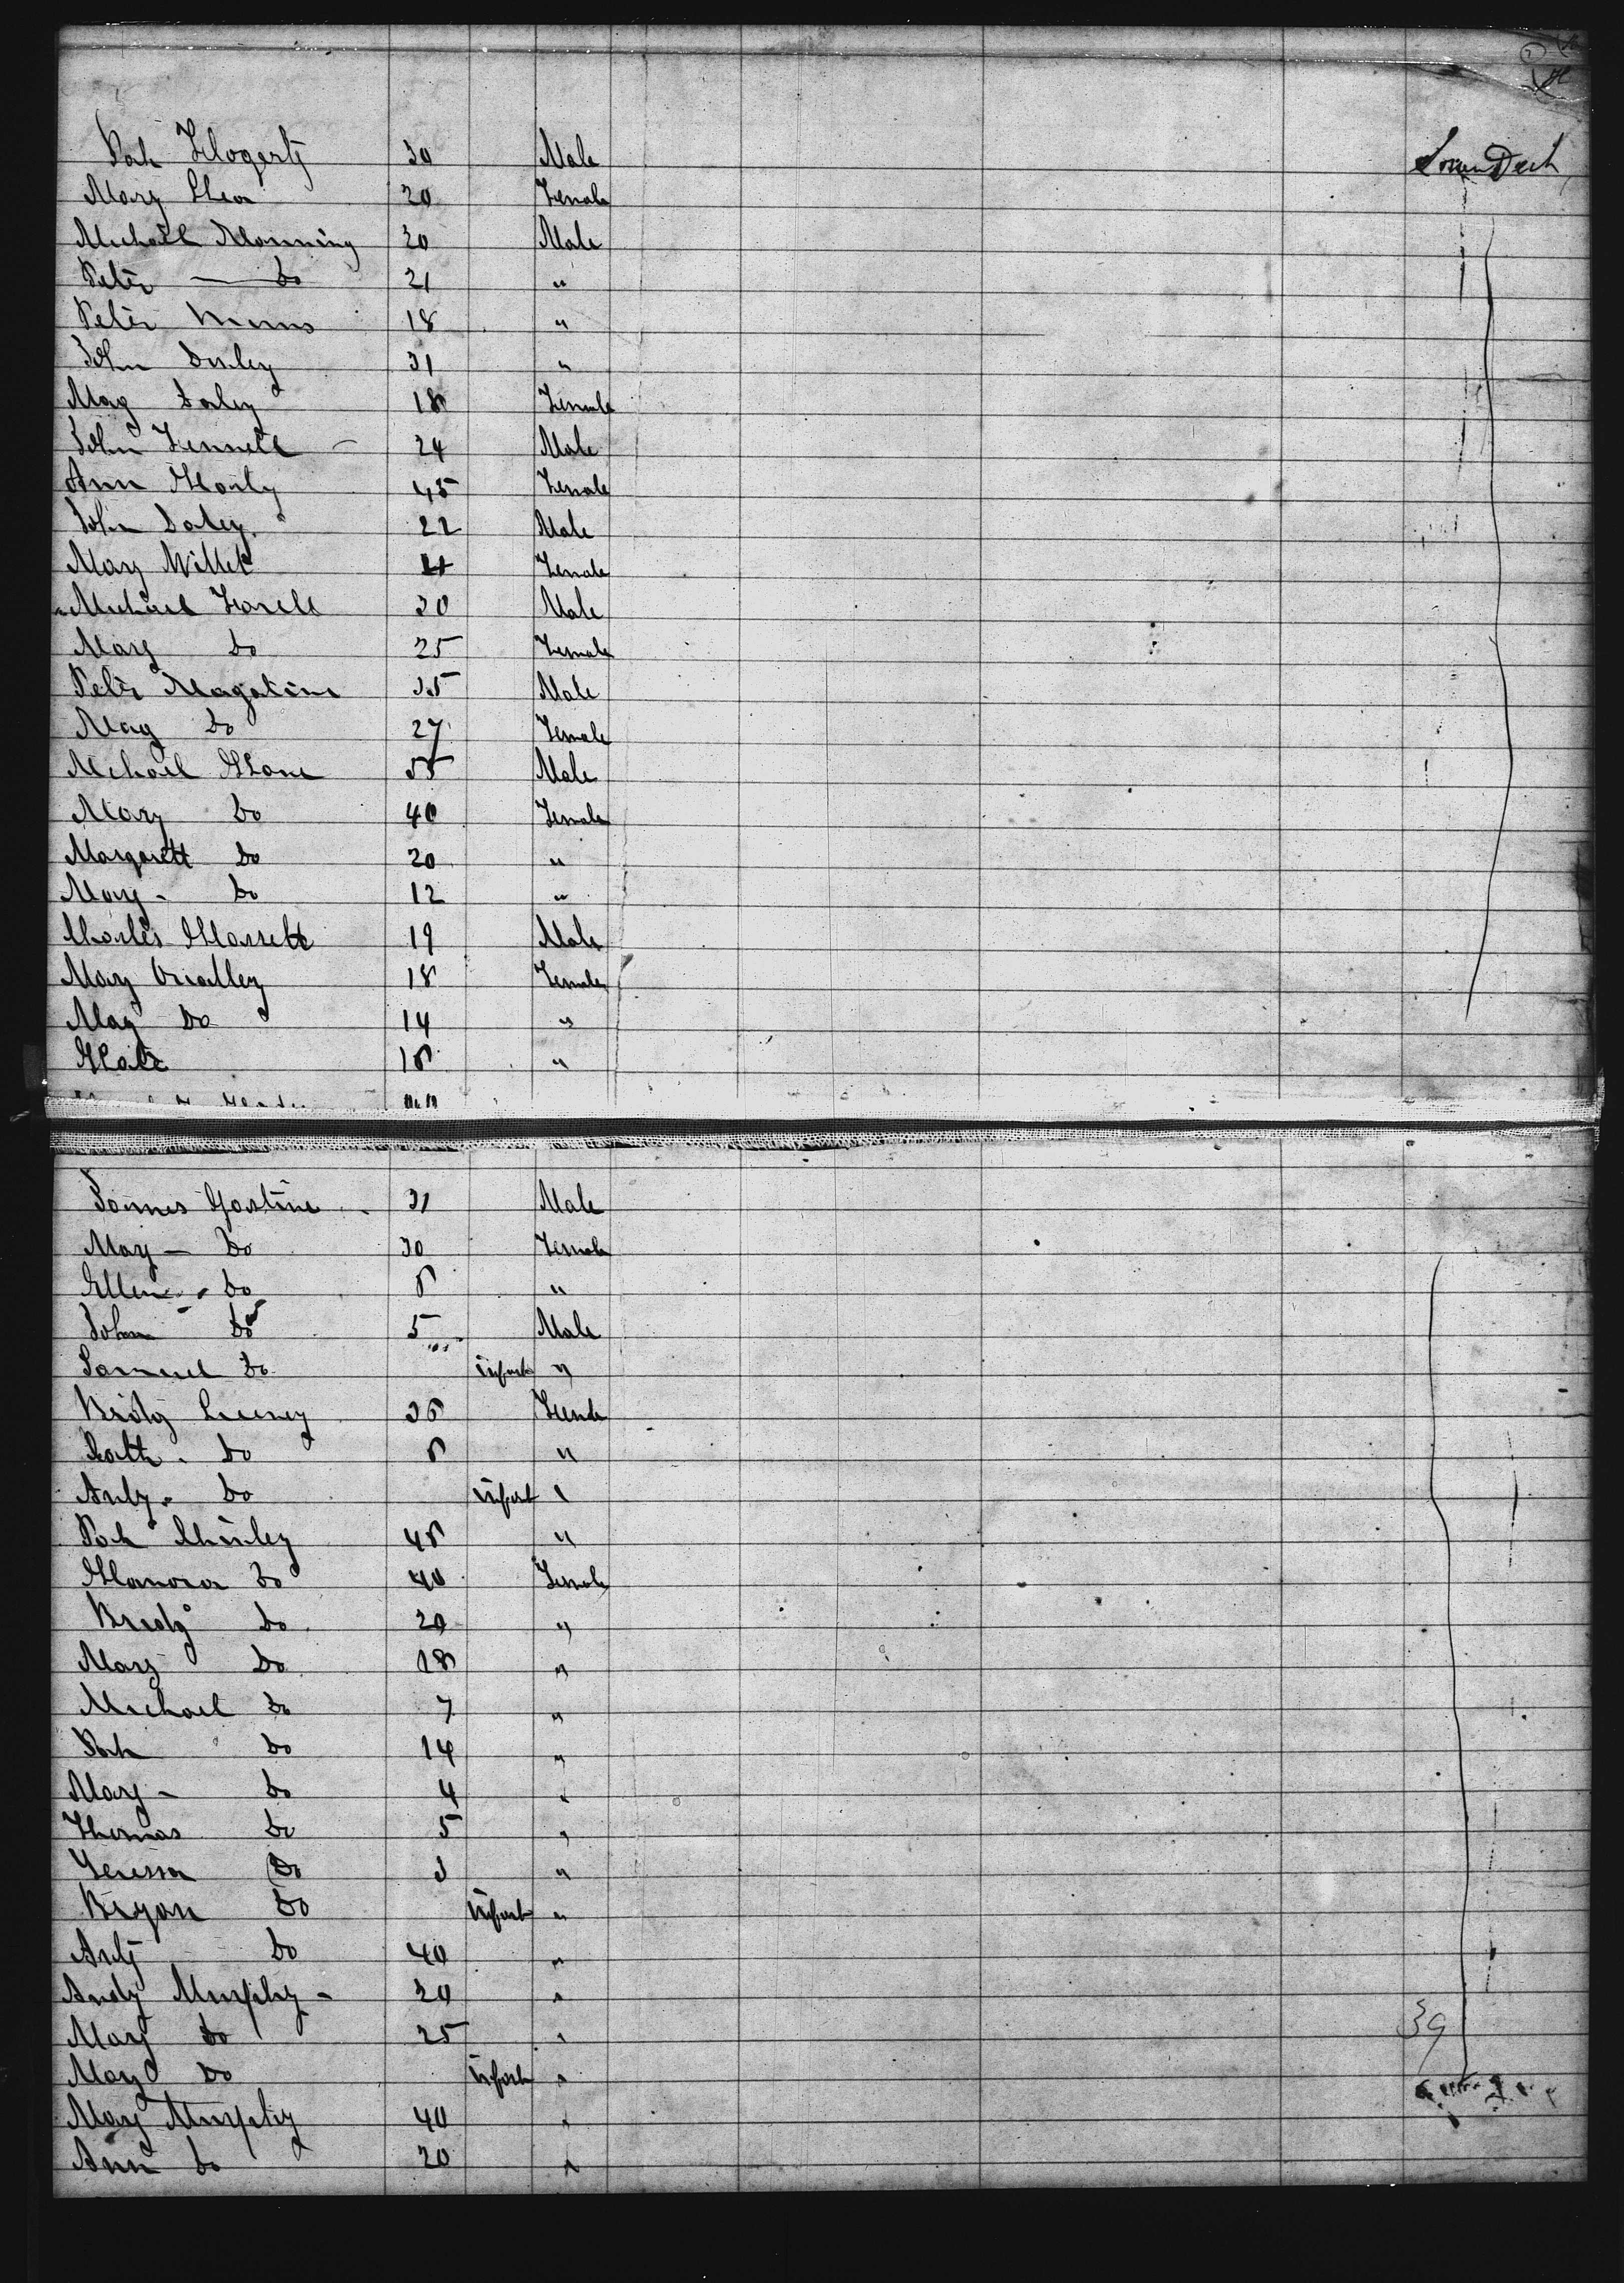 Pat Hogerty 30 Male
Mary Shea 20 Female
Michael Manning 30 Male
Peter — Do 21 "
Peter 18 "
John Daley 31 "
Mag Daley 18 Female
John Fennell 24 Male
Ann Harly 45 Female
John Daley 22 Male
Mary Willet Female
Michael Farell 30 Male
Mary Do 25 Female
Peter 35 Male
Mag Do 27 Female
Michael Kane 55 Male
Mary Do 40 Female
Margarett Do 20 "
Mary - Do 12 "
Charles Hassett 19 Male
Mary Omalley 18 Female
Mag Do 14 "
Kate 18 "
James Gastine 31 Male
Mary — Do 30 Female
Ellen - Do 8 "
John Do 5 Male
Samuel Do infant "
Bridg 36 Female
Kath - Do 8 "
Anty - Do infant "
Pat Shirley 48 "
Hanora Do 40 Female
Bridg Do 20 "
Mary Do 18 "
Michael Do 7 "
Pat Do 14 "
Mary - Do 4 "
Thomas Do 5 "
Do 3 "
Bryan Do infant "
Anty Do 40 "
Andy Murphy - 30 "
Mary Do 25 "
39
Mary Do infant "
Mary Murphy 40 "
Ann Do 20 "